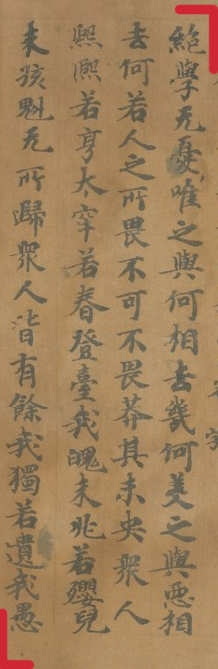 絶學无憂唯之與何相去幾何美之與惡相
去何若人之所畏不可不畏莽其未央衆人
熙熙若亨太牢若春登臺我魄未兆若嬰兒
未孩魁无所歸衆人皆有餘我獨若遺我愚